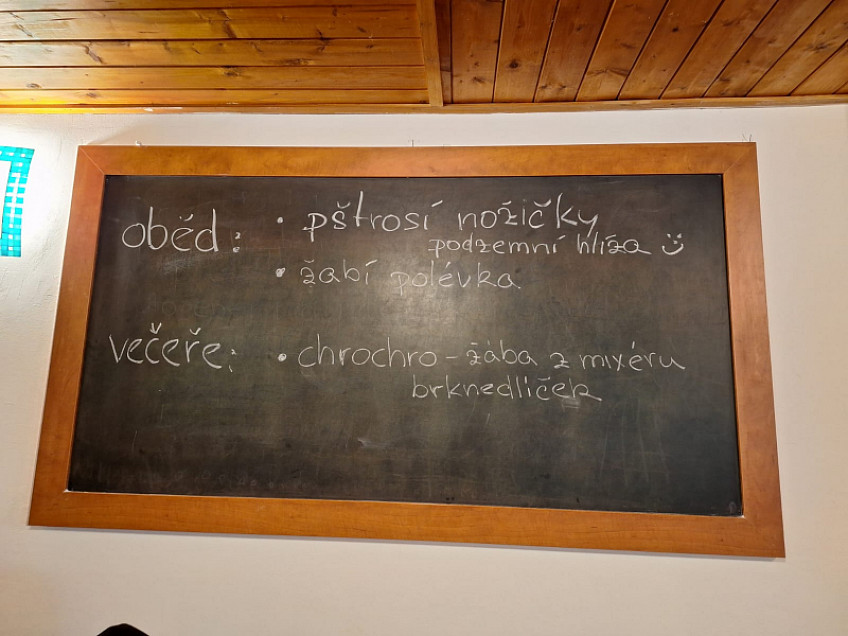 oběd: • pštrosí nožičky
podzemní hlíza
• žabí polévka
večeře: • chrochro - žába z mixéru
brknedlíček